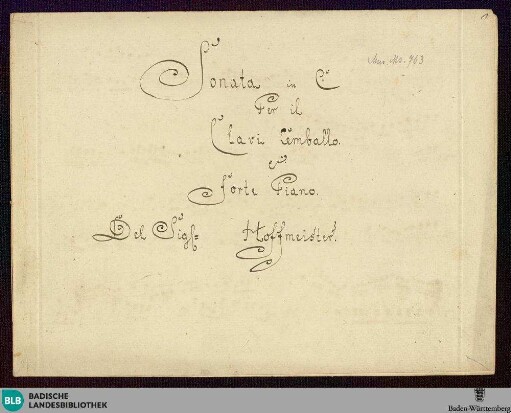 Mus. Ms. 963
Sonata in C
Per il
Clavi Cemballo.
e
Forte Piano.
Del Sigr. Hoffmeister.
BLB BADISCHE LANDESBIBLIOTHEK
Baden-Württemberg